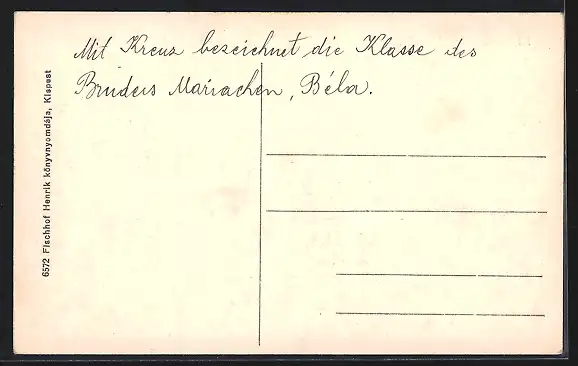 Mit Kreuz bezeichnet die Klasse des
Bruders Mariachen, Béla.
6572 Fischhof Henrik könyvnyomdája, Kispest